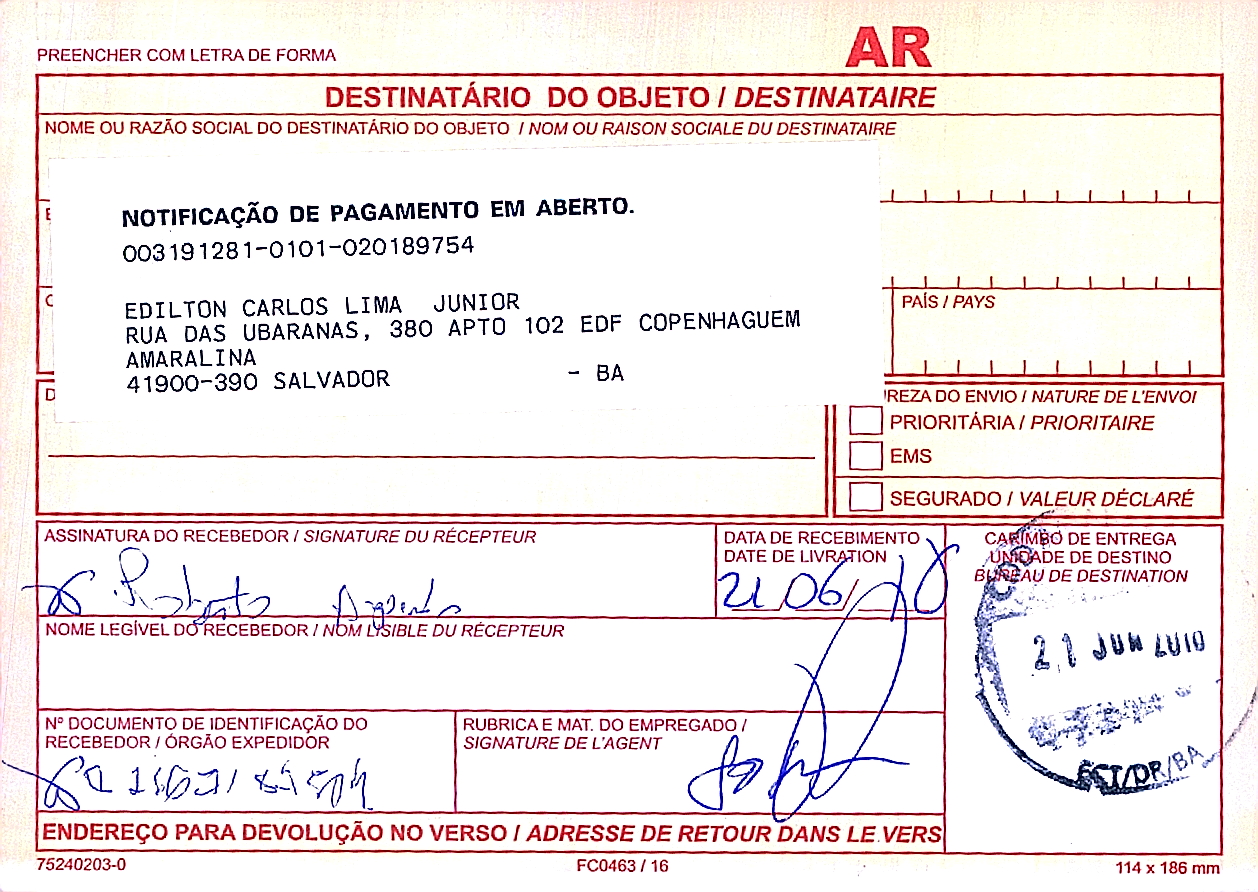 PREENCHER COM LETRA DE FORMA
AR
DESTINATÁRIO DO OBJETO / DESTINATAIRE
NOME OU RAZÃO SOCIAL DO DESTINATÁRIO DO OBJETO / NOM OU RAISON SOCIALE DU DESTINATAIRE
NOTIFICAÇÃO DE PAGAMENTO EM ABERTO.
003191281-0101-020189754
EDILTON CARLOS LIMA JUNIOR
RUA DAS UBARANAS, 380 APTO 102 EDF COPENHAGUEM
AMARALINA
41900-390 SALVADOR - BA
PAÍS / PAYS
DO ENVIO / NATURE DE L'ENVOI
PRIORITÁRIA / PRIORITAIRE
EMS
SEGURADO / VALEUR DÉCLARÉ
ASSINATURA DO RECEBEDOR / SIGNATURE DU RÉCEPTEUR
Roberto
DATA DE RECEBIMENTO
DATE DE LIVRATION
21/06/10
CARIMBO DE ENTREGA
UNIDADE DE DESTINO
BUREAU DE DESTINATION
21 JUN 2010
ECT/DR/BA
NOME LEGÍVEL DO RECEBEDOR / NOM LISIBLE DU RÉCEPTEUR
Nº DOCUMENTO DE IDENTIFICAÇÃO DO
RECEBEDOR / ÓRGÃO EXPEDIDOR
RUBRICA E MAT. DO EMPREGADO /
SIGNATURE DE L'AGENT
ENDEREÇO PARA DEVOLUÇÃO NO VERSO / ADRESSE DE RETOUR DANS LE VERS
75240203-0
FC0463 / 16
114 x 186 mm